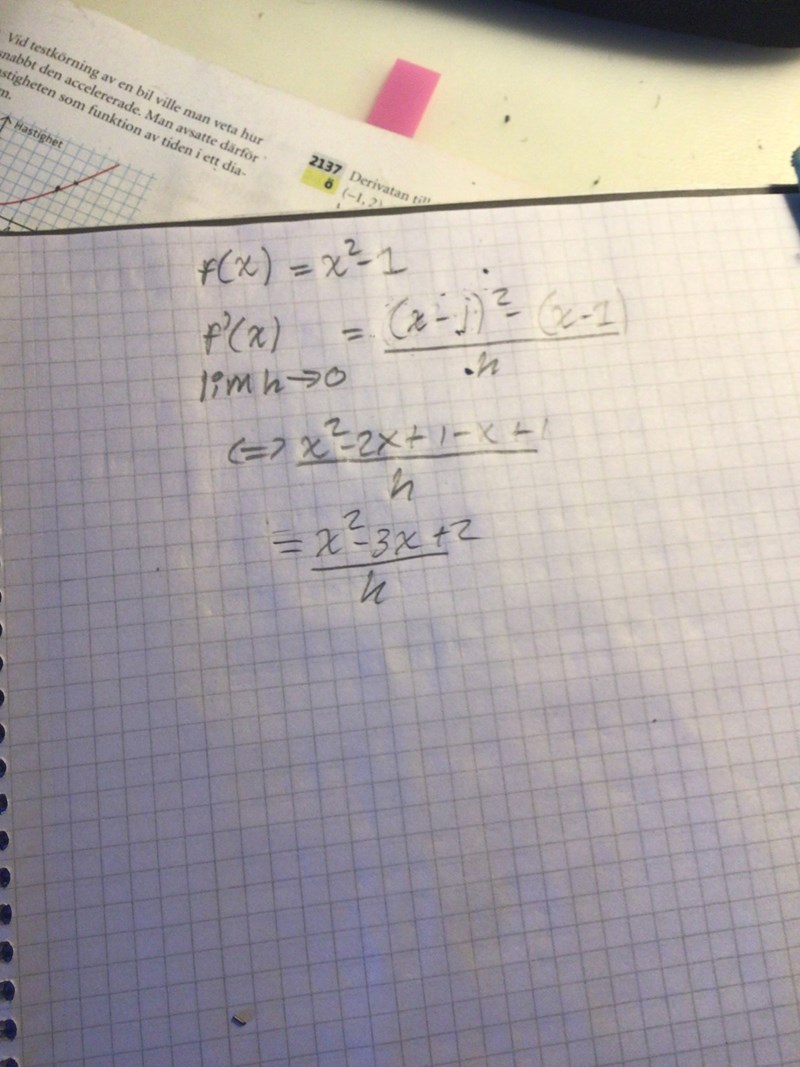 Vid testkörning av en bil ville man veta hur
snabbt den accelererade. Man avsatte därför
stigheten som funktion av tiden i ett dia-
m.
Hastighet
2137
ö
Derivatan till
(-1, 2)
f(x) = x²-1
f'(x) = (x-1)²- (x-1)
h
lim h→0
<=> x²-2x+1-x+1
h
= x²-3x+2
h